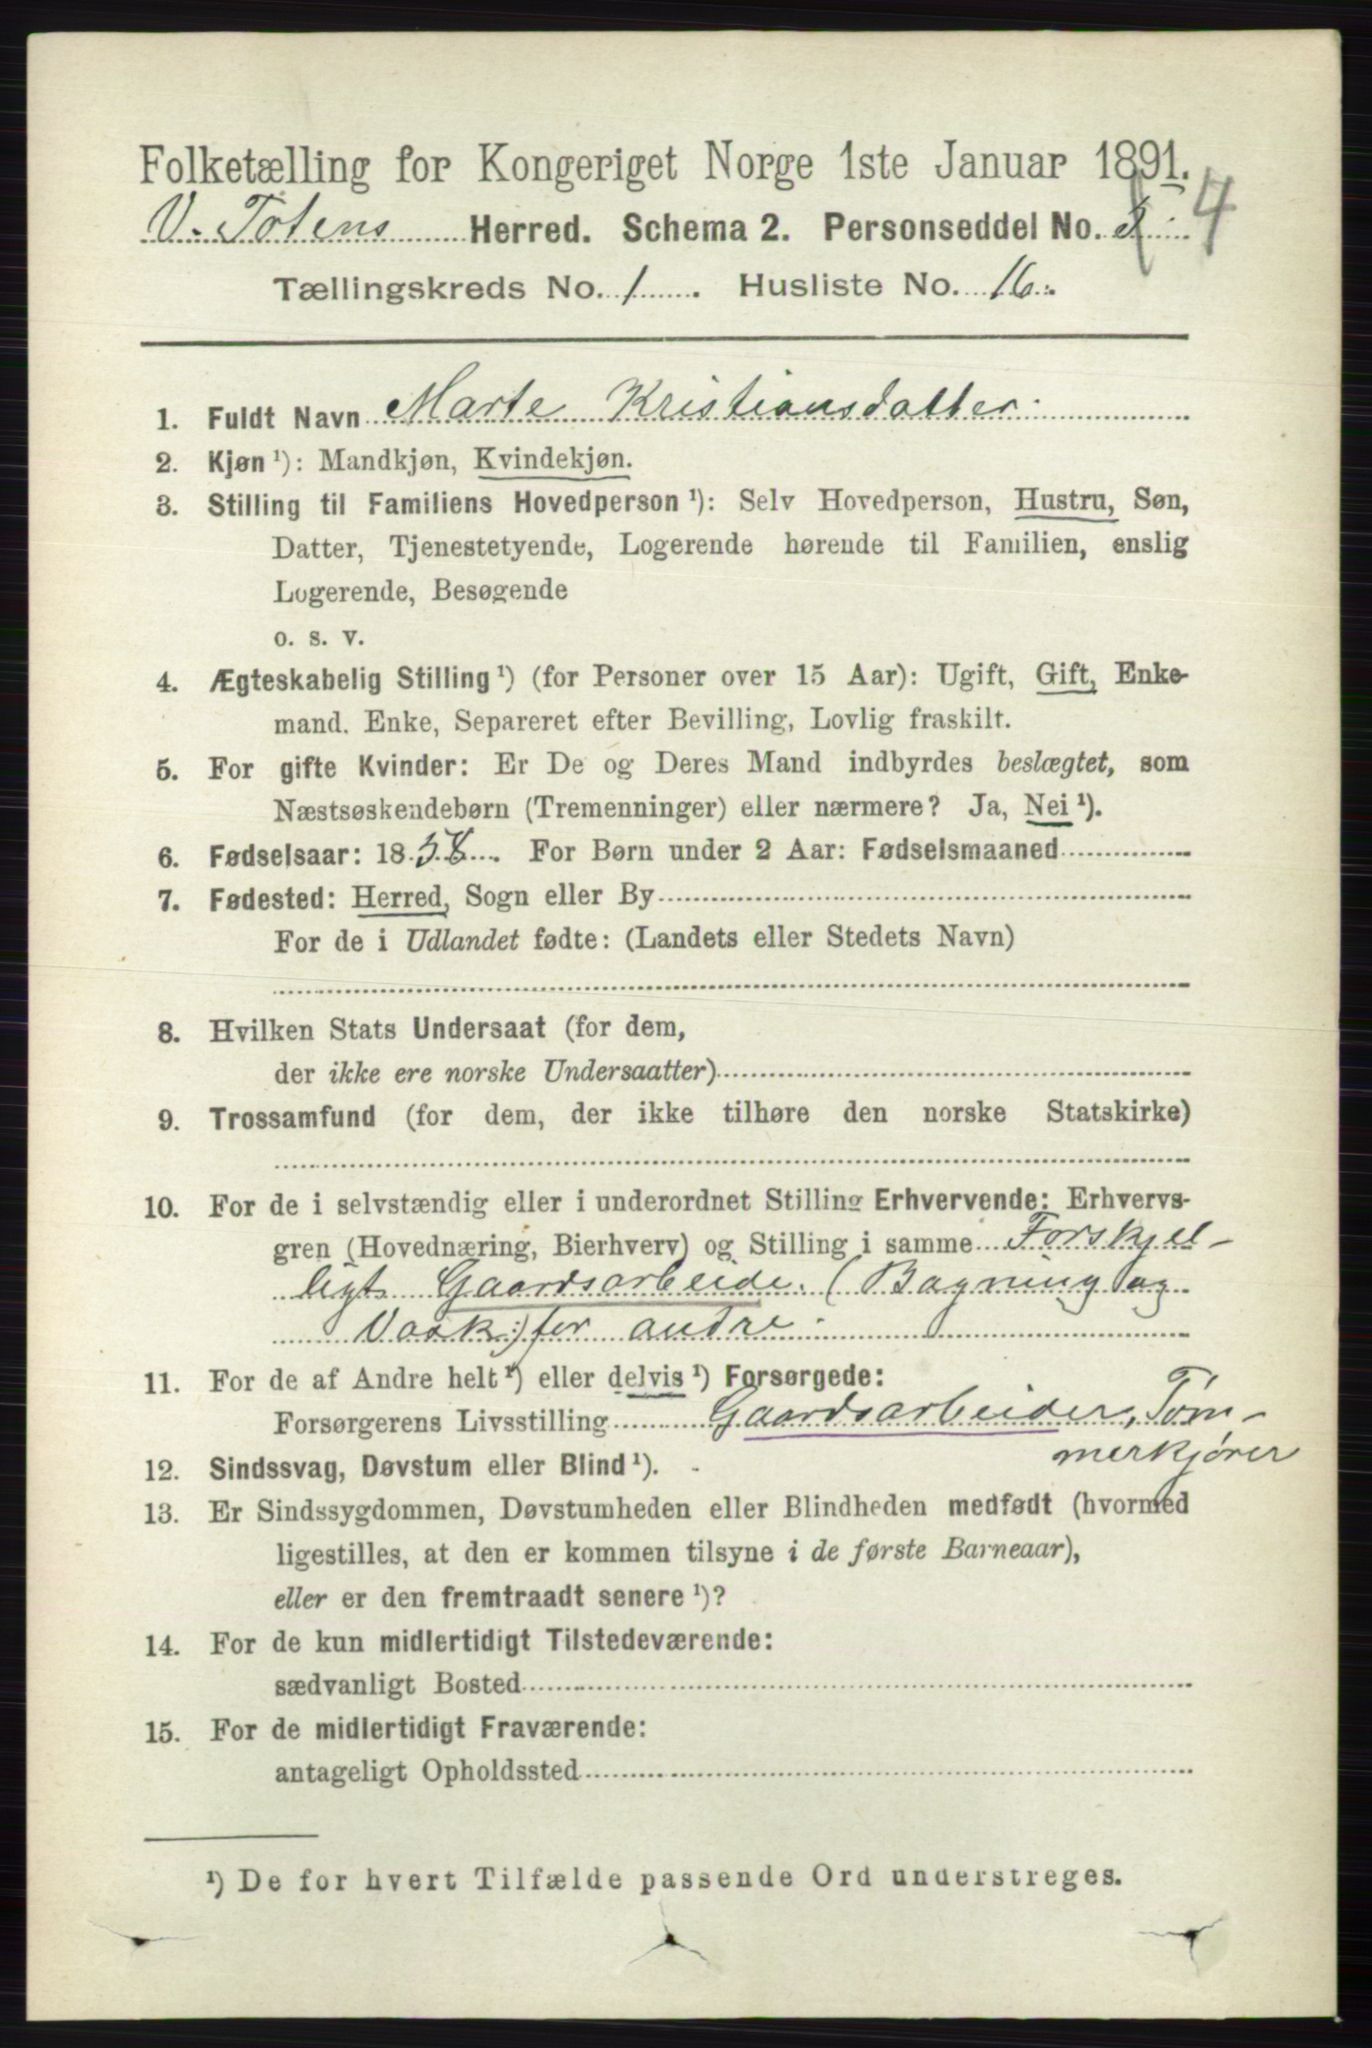 Folketælling for Kongeriget Norge 1ste Januar 1891.
V. Totens Herred. Schema 2. Personseddel No. 4
Tællingskreds No. 1. Husliste No. 16.
1. Fuldt Navn Marte Kristiansdatter
2. Kjøn ¹): Mandkjøn, Kvindekjøn.
3. Stilling til Familiens Hovedperson ¹): Selv Hovedperson, Hustru, Søn,
Datter, Tjenestetyende, Logerende hørende til Familien, enslig
Logerende, Besøgende
o. s. v.
4. Ægteskabelig Stilling ¹) (for Personer over 15 Aar): Ugift, Gift, Enke-
mand. Enke, Separeret efter Bevilling, Lovlig fraskilt.
5. For gifte Kvinder: Er De og Deres Mand indbyrdes beslægtet, som
Næstsøskendebørn (Tremenninger) eller nærmere? Ja, Nei ¹).
6. Fødselsaar: 1858. For Børn under 2 Aar: Fødselsmaaned
7. Fødested: Herred, Sogn eller By
For de i Udlandet fødte: (Landets eller Stedets Navn)
8. Hvilken Stats Undersaat (for dem,
der ikke ere norske Undersaatter)
9. Trossamfund (for dem, der ikke tilhøre den norske Statskirke)
10. For de i selvstændig eller i underordnet Stilling Erhvervende: Erhvervs-
gren (Hovednæring, Bierhverv) og Stilling i samme Forskjel-
ligt Gaardsarbeide. (Bagning og
Vask:) for andre
11. For de af Andre helt ¹) eller delvis ¹) Forsørgede:
Forsørgerens Livsstilling Gaardsarbeider, Tøm-
merkjører
12. Sindssvag, Døvstum eller Blind ¹).
13. Er Sindssygdommen, Døvstumheden eller Blindheden medfødt (hvormed
ligestilles, at den er kommen tilsyne i de første Barneaar),
eller er den fremtraadt senere ¹)?
14. For de kun midlertidigt Tilstedeværende:
sædvanligt Bosted
15. For de midlertidigt Fraværende:
antageligt Opholdssted
¹) De for hvert Tilfælde passende Ord understreges.